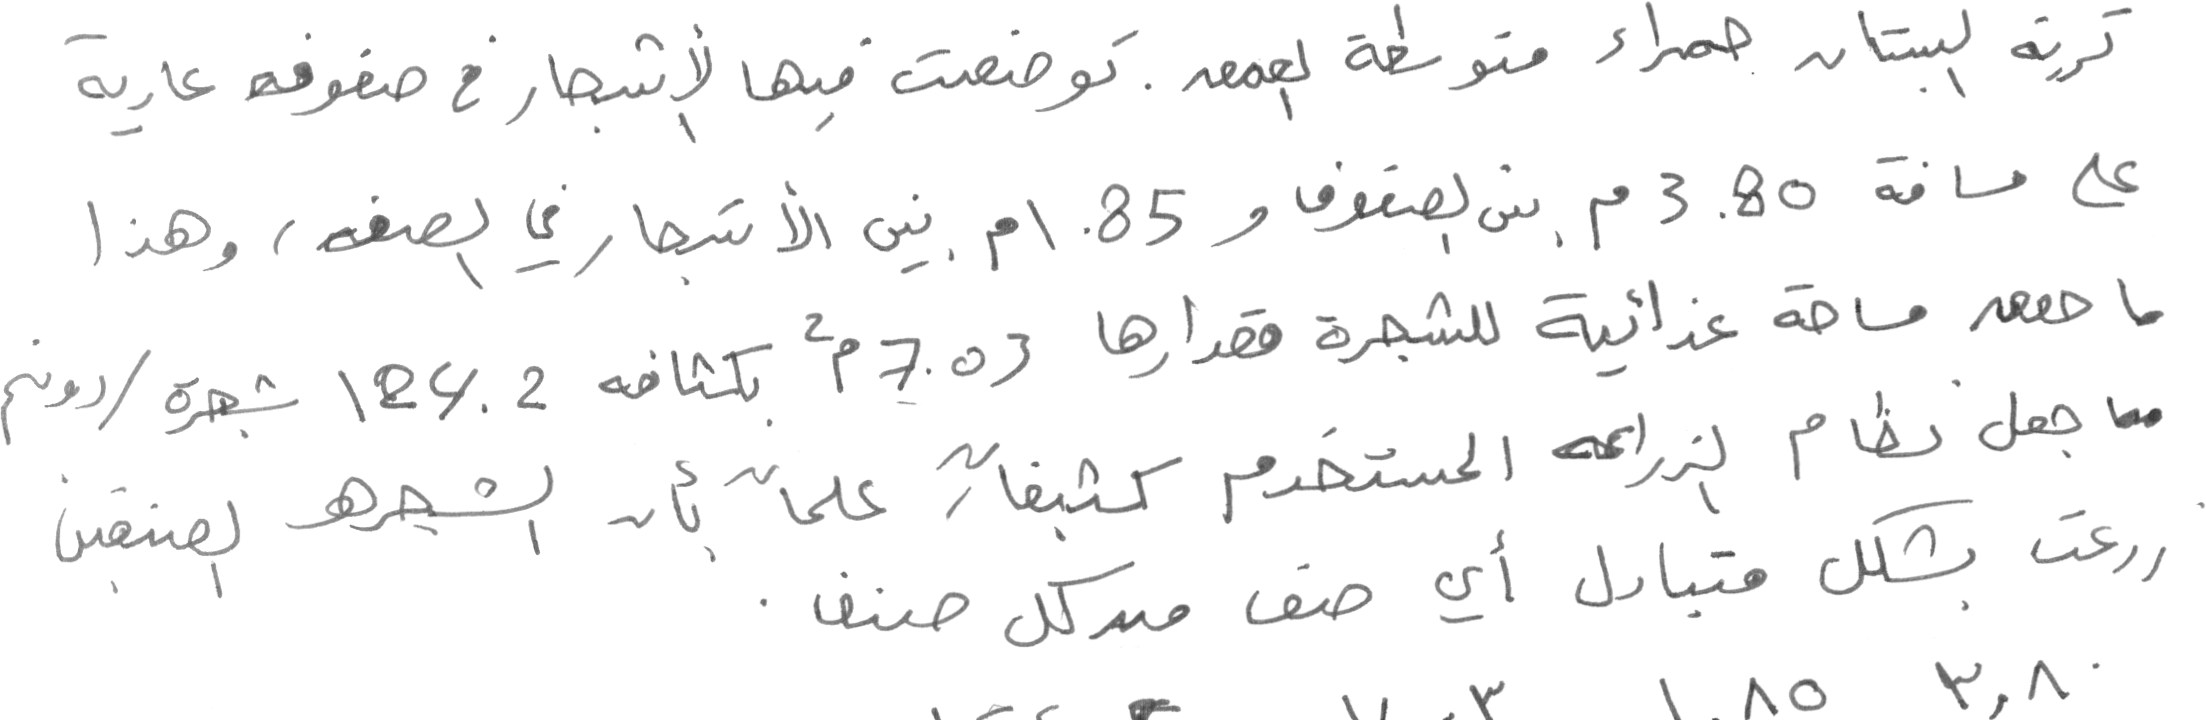 تربة البستان حمراء متوسطة العمق. توضعت فيها الأشجار في صفوف عارية
على مسافة 3.80 م بين الصفوف و 1.85 م بين الأشجار في الصف، وهذا
ما حقق مساحة غذائية للشجرة مقدارها 7.03 م2 بكثافه 124.2 شجرة/دونم
مما جعل نظام الزراعه المستخدم كثيفاً علماً بأن الشجره الصنفين
زرعت بشكل متبادل أي صف من كل صنف.
٣,٨٠ ١,٨٥ ٧,٠٣